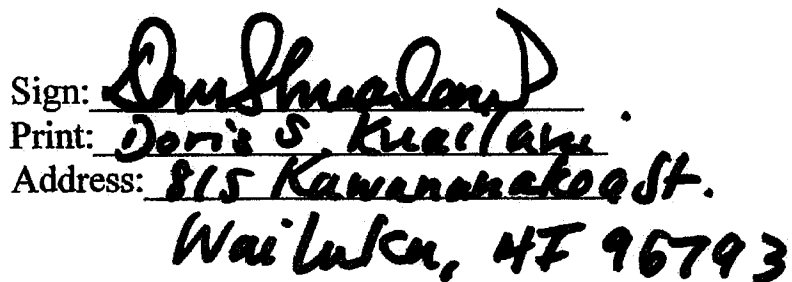 Sign:
Print: Doris S. Kuailani
Address: 815 Kawananakoa St.
Wailuku, HI 96793